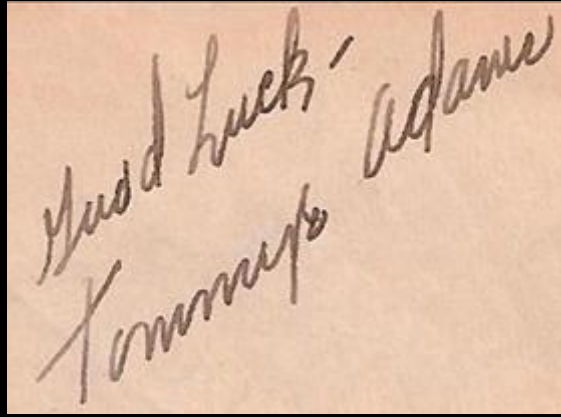 Good Luck -
Tommye Adams